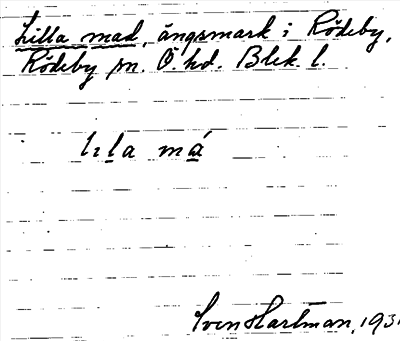 Lilla mad, ängsmark i Rödeby,
Rödeby sn. Ö. hd. Blek. l.
lıla má
Sven Hartman, 193